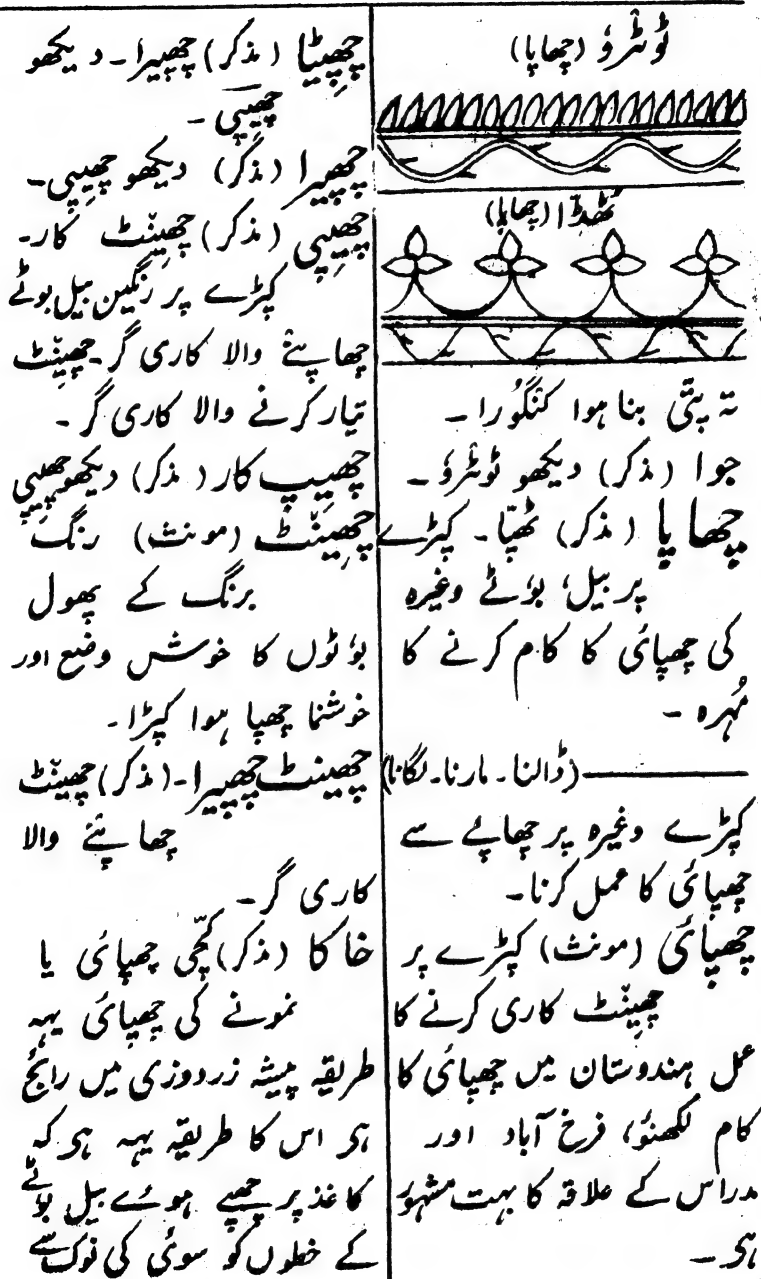 ٹونٹرؤ (چھاپا)
ٹھڈا (چھاپا)
تہ پتّی بنا ہوا کنگُورا ۔
جوا (مذکر) دیکھو ٹونٹرؤ ۔
چھاپا (مذکر) ٹھپّا ۔ کپڑے
پر بیل، بوٗٹے وغیرہ
کی چھپائی کا کام کرنے کا
مُہرہ ۔
——— (ڈالنا ۔ مارنا ۔ لگانا)
کپڑے وغیرہ پر چھاپے سے
چھپائی کا عمل کرنا ۔
چھپائی (مونث) کپڑے پر
چھینٹ کاری کرنے کا
عمل ہندوستان میں چھپائی کا
کام لکھنؤ، فرخ آباد اور
مدراس کے علاقہ کا بہت مشہور
ہی ۔
چھپیٹا (مذکر) چھپیرا ۔ دیکھو
چھیپی ۔
چھپیرا (مذکر) دیکھو چھیپی ۔
چھیپی (مذکر) چھینٹ کار ۔
کپڑے پر رنگین بیل بوٹے
چھاپنے والا کاری گر ۔ چھینٹ
تیار کرنے والا کاری گر ۔
چھیپ کار (مذکر) دیکھو چھیپی
چھینٹ (مونث) رنگ
برنگ کے پھول
بوٗٹوں کا خوش وضع اور
خوشنما چھپا ہوا کپڑا ۔
چھینٹ چھپیرا ۔ (مذکر) چھینٹ
چھاپنے والا
کاری گر ۔
خاکا (مذکر) کچّی چھپائی یا
نمونے کی چھپائی یہہ
طریقہ پیشہ زردوزی میں رائج
ہی اس کا طریقہ یہہ ہی کہ
کاغذ پر چھپے ہوے بیل بوٹے
کے خطوں کو سوئی کی نوک سے